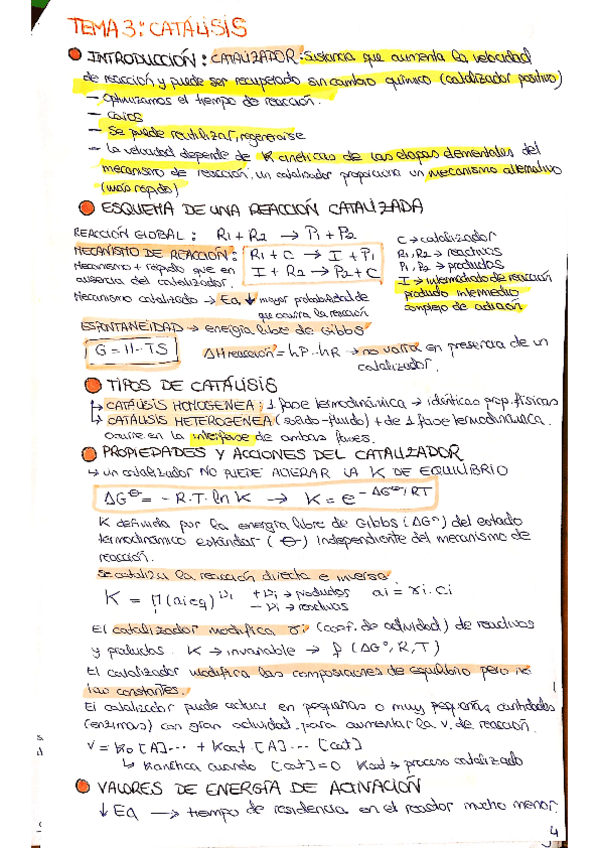 TEMA 3: CATÁLISIS
INTRODUCCIÓN: CATALIZADOR: Sustancia que aumenta la velocidad
de reacción y puede ser recuperado sin cambio químico (catalizador positivo)
- Optimizamos el tiempo de reacción.
- Caros
- Se puede reutilizar, regenerarse
- La velocidad depende de K cinéticas de las etapas elementales del
mecanismo de reacción, un catalizador proporciona un mecanismo alternativo
(más rápido)
ESQUEMA DE UNA REACCIÓN CATALIZADA
REACCIÓN GLOBAL: R1 + R2 → P1 + P2
C → catalizador
MECANISMO DE REACCIÓN: R1 + C → I + P1
R1, R2 → reactivos
Mecanismo + rápido que en I + R2 → P2 + C
P1, P2 → productos
ausencia del catalizador.
I → intermediato de reacción
producto intermedio
complejo de adición
Mecanismo catalizado → Ea ↓ mayor probabilidad de
que ocurra la reacción
ESPONTANEIDAD → energía libre de Gibbs
G = H - TS
ΔH reacción = hP - hR → no varía en presencia de un
catalizador.
TIPOS DE CATÁLISIS
↳ CATÁLISIS HOMOGENEA: 1 fase termodinámica → idénticas prop. físicas
↳ CATÁLISIS HETEROGENEA (sólido-fluido) + de 1 fase termodinámica.
Ocurre en la interfase de ambas fases.
PROPIEDADES Y ACCIONES DEL CATALIZADOR
↳ un catalizador NO PUEDE ALTERAR LA K DE EQUILIBRIO
ΔG⊖ = - R.T. ln K → K = e^-ΔG⊖/RT
K definida por la energía libre de Gibbs (ΔG°) del estado
termodinámico estándar (⊖) independiente del mecanismo de
reacción.
Se cataliza la reacción directa e inversa
K = Π(ai eq)^νi +νi → productos ai = γi.ci
-νi → reactivos
El catalizador modifica γi (coef. de actividad) de reactivos
y productos. K → invariable → f (ΔG°, R, T)
El catalizador modifica las composiciones de equilibrio pero no
las constantes.
El catalizador puede actuar en pequeñas o muy pequeñas cantidades
(enzimas) con gran actividad para aumentar la v. de reacción.
V = Ko [A]... + Kcat [A]... [cat]
↳ K cinética cuando [cat]=0 Kcat → proceso catalizado
VALORES DE ENERGÍA DE ACTIVACIÓN
↓ Ea → tiempo de residencia en el reactor mucho menor.
4